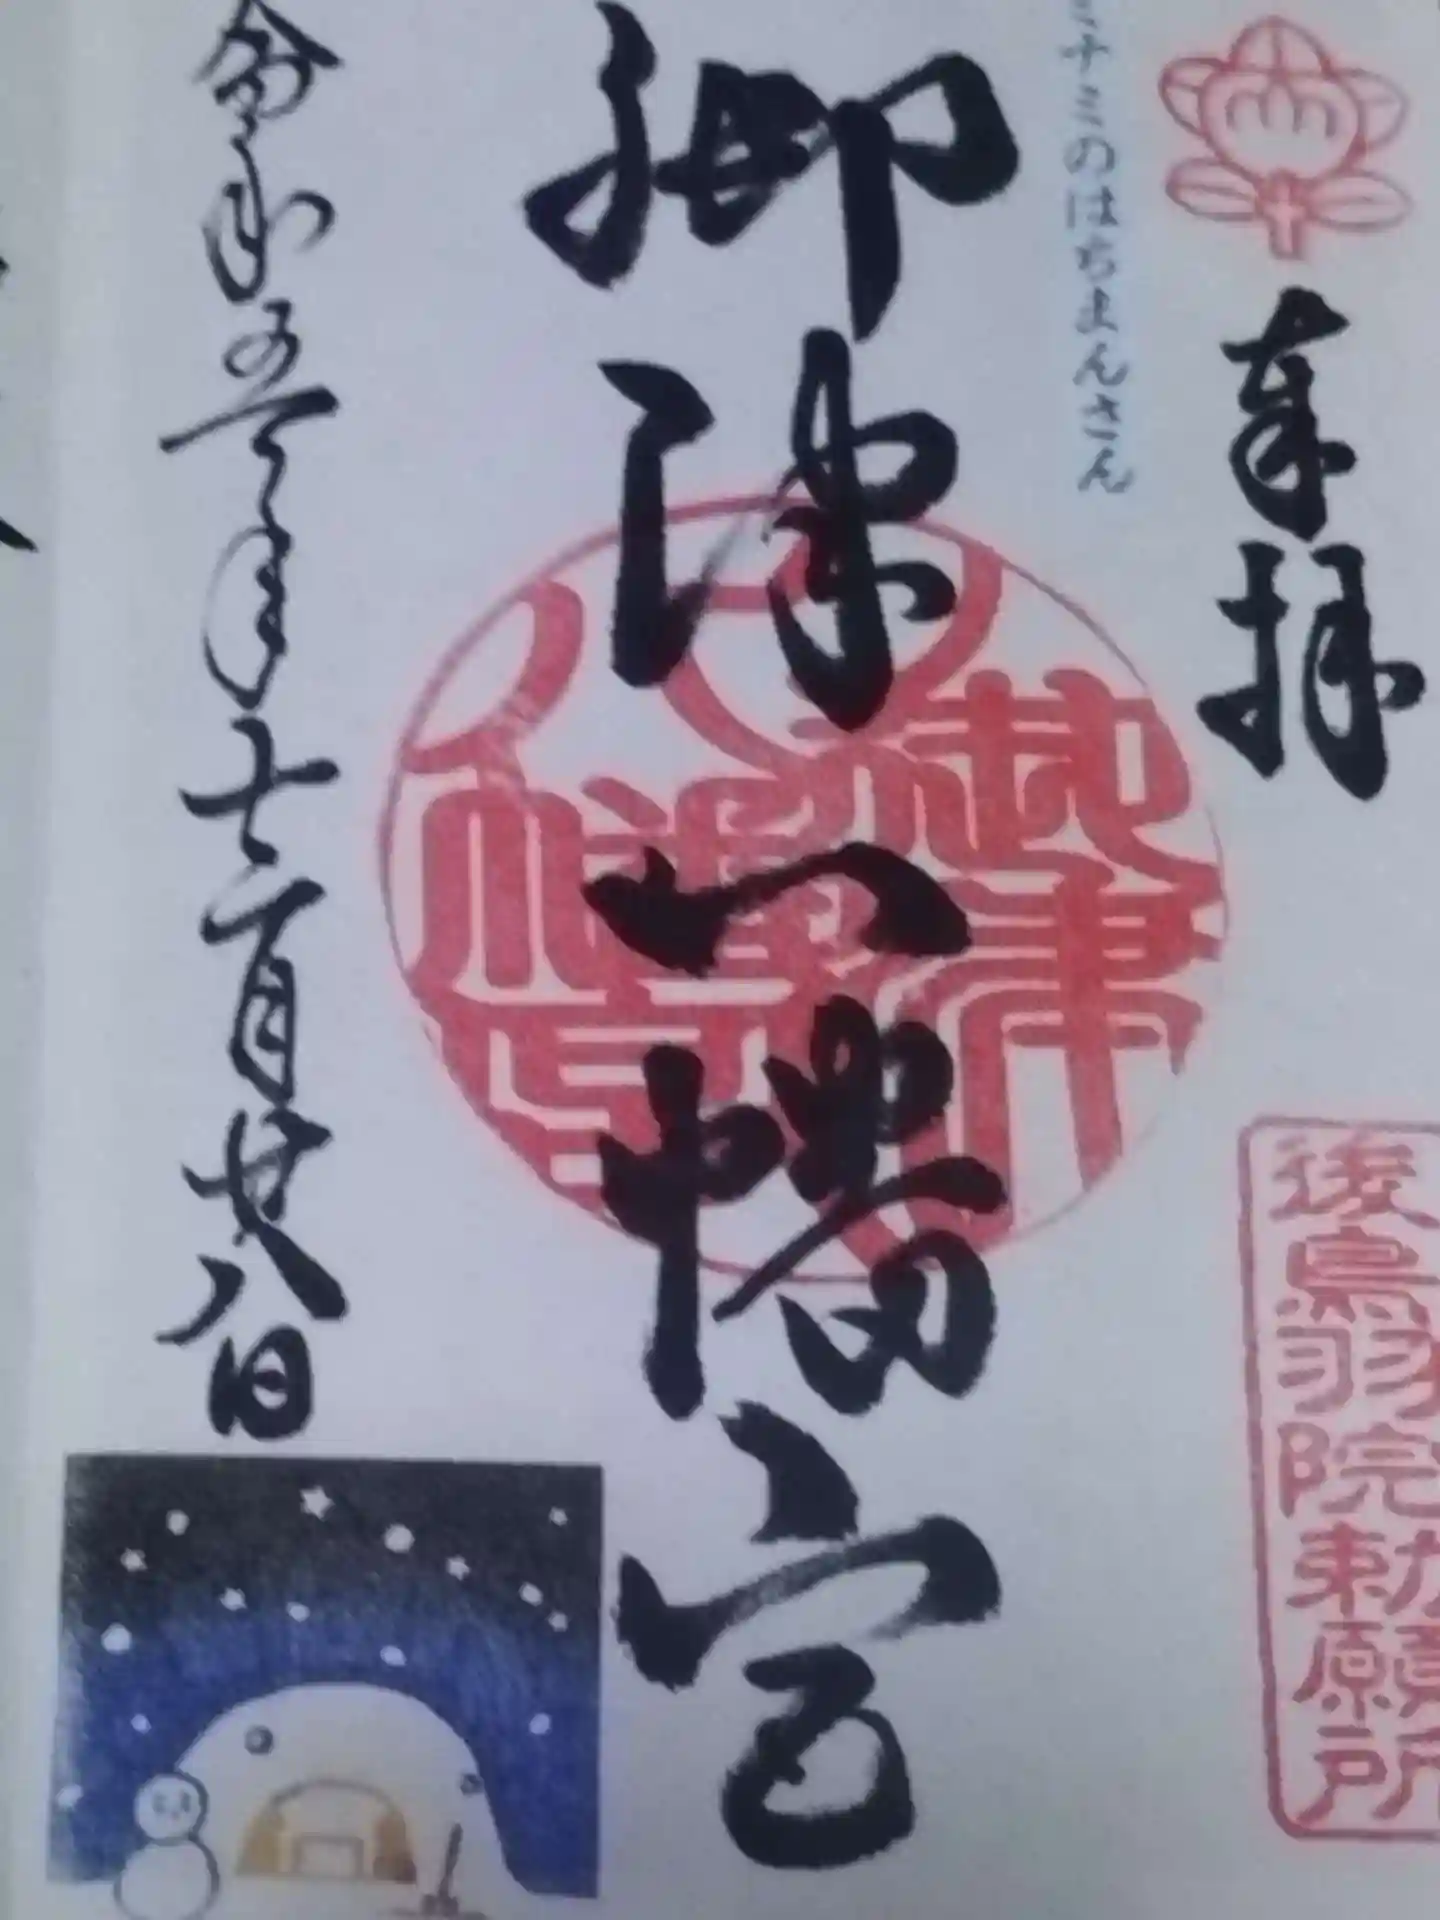 奉拝
後鳥羽院勅願所
ミナミのはちまんさん
御津八幡宮
御津
八幡宮
令和五年十二月廿八日